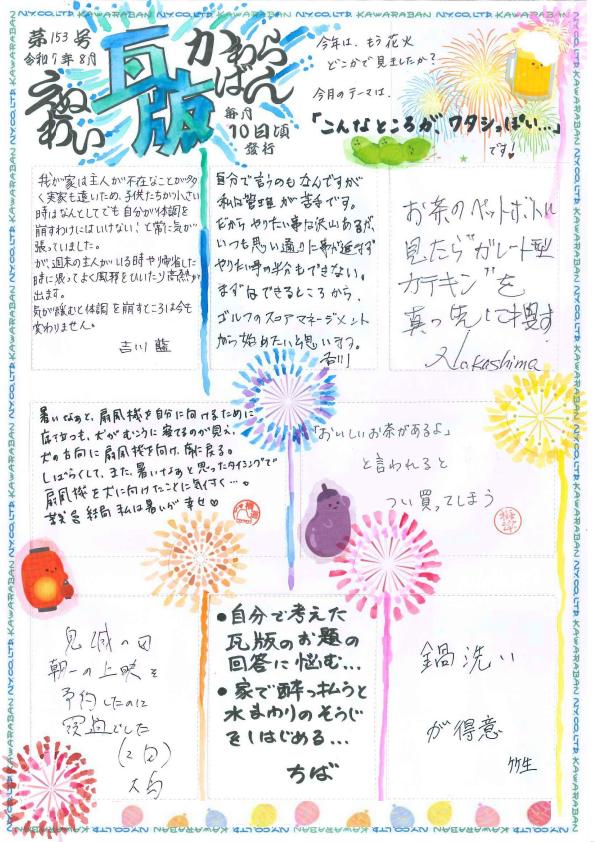 第153号
令和7年8月
えぬわい
瓦版
かわらばん
毎月
10日頃
発行
今年は、もう花火
どこかで見ましたか?
今月のテーマは、
「こんなところが、ワタシっぽい…」
です!
我が家は主人が不在なことが多
く実家も遠いため、子供たちが小さい
時はなんとしてでも自分が体調を
崩すわけにはいけない!と常に気が
張っていました。
が、週末の主人がいる時や帰省した
時に張ってよく風邪をひいたり高熱が
出ます。
気が緩むと体調を崩すところは今も
変わりません。
吉川 藍
自分で言うのもなんですが
私は管理が苦手です。
だからやりたい事な沢山あるが、
いつも思い通りに事が進まず
やりたい事の半分もできない。
まずはできるところから、
ゴルフのスコアマネージメント
から始めたいと思います。
石川
お茶のペットボトル
見たら"ガレート型
カテキン"を
真っ先に捜す
Nakashima
暑いなぁと、扇風機を自分に向けるために
立つも、犬がむこうに寝てるのが見え、
犬の方向に扇風機を向け、席に戻る。
しばらくして、また、暑いなぁと思ったタイミングで
扇風機を犬に向けたことに気付く…。
結局私は暑いが幸せ♡
「おいしいお茶があるよ」
と言われると
つい買ってしまう
鬼滅の日
朝一の上映を
予約したのに
寝過ごした
(2回)
大島
●自分で考えた
瓦版のお題の
回答に悩む…
●家で酔っ払うと
水まわりのそうじ
をしはじめる…
ちば
鍋洗い
が得意
竹生
N.Y.CO.,LTD. KAWARABAN